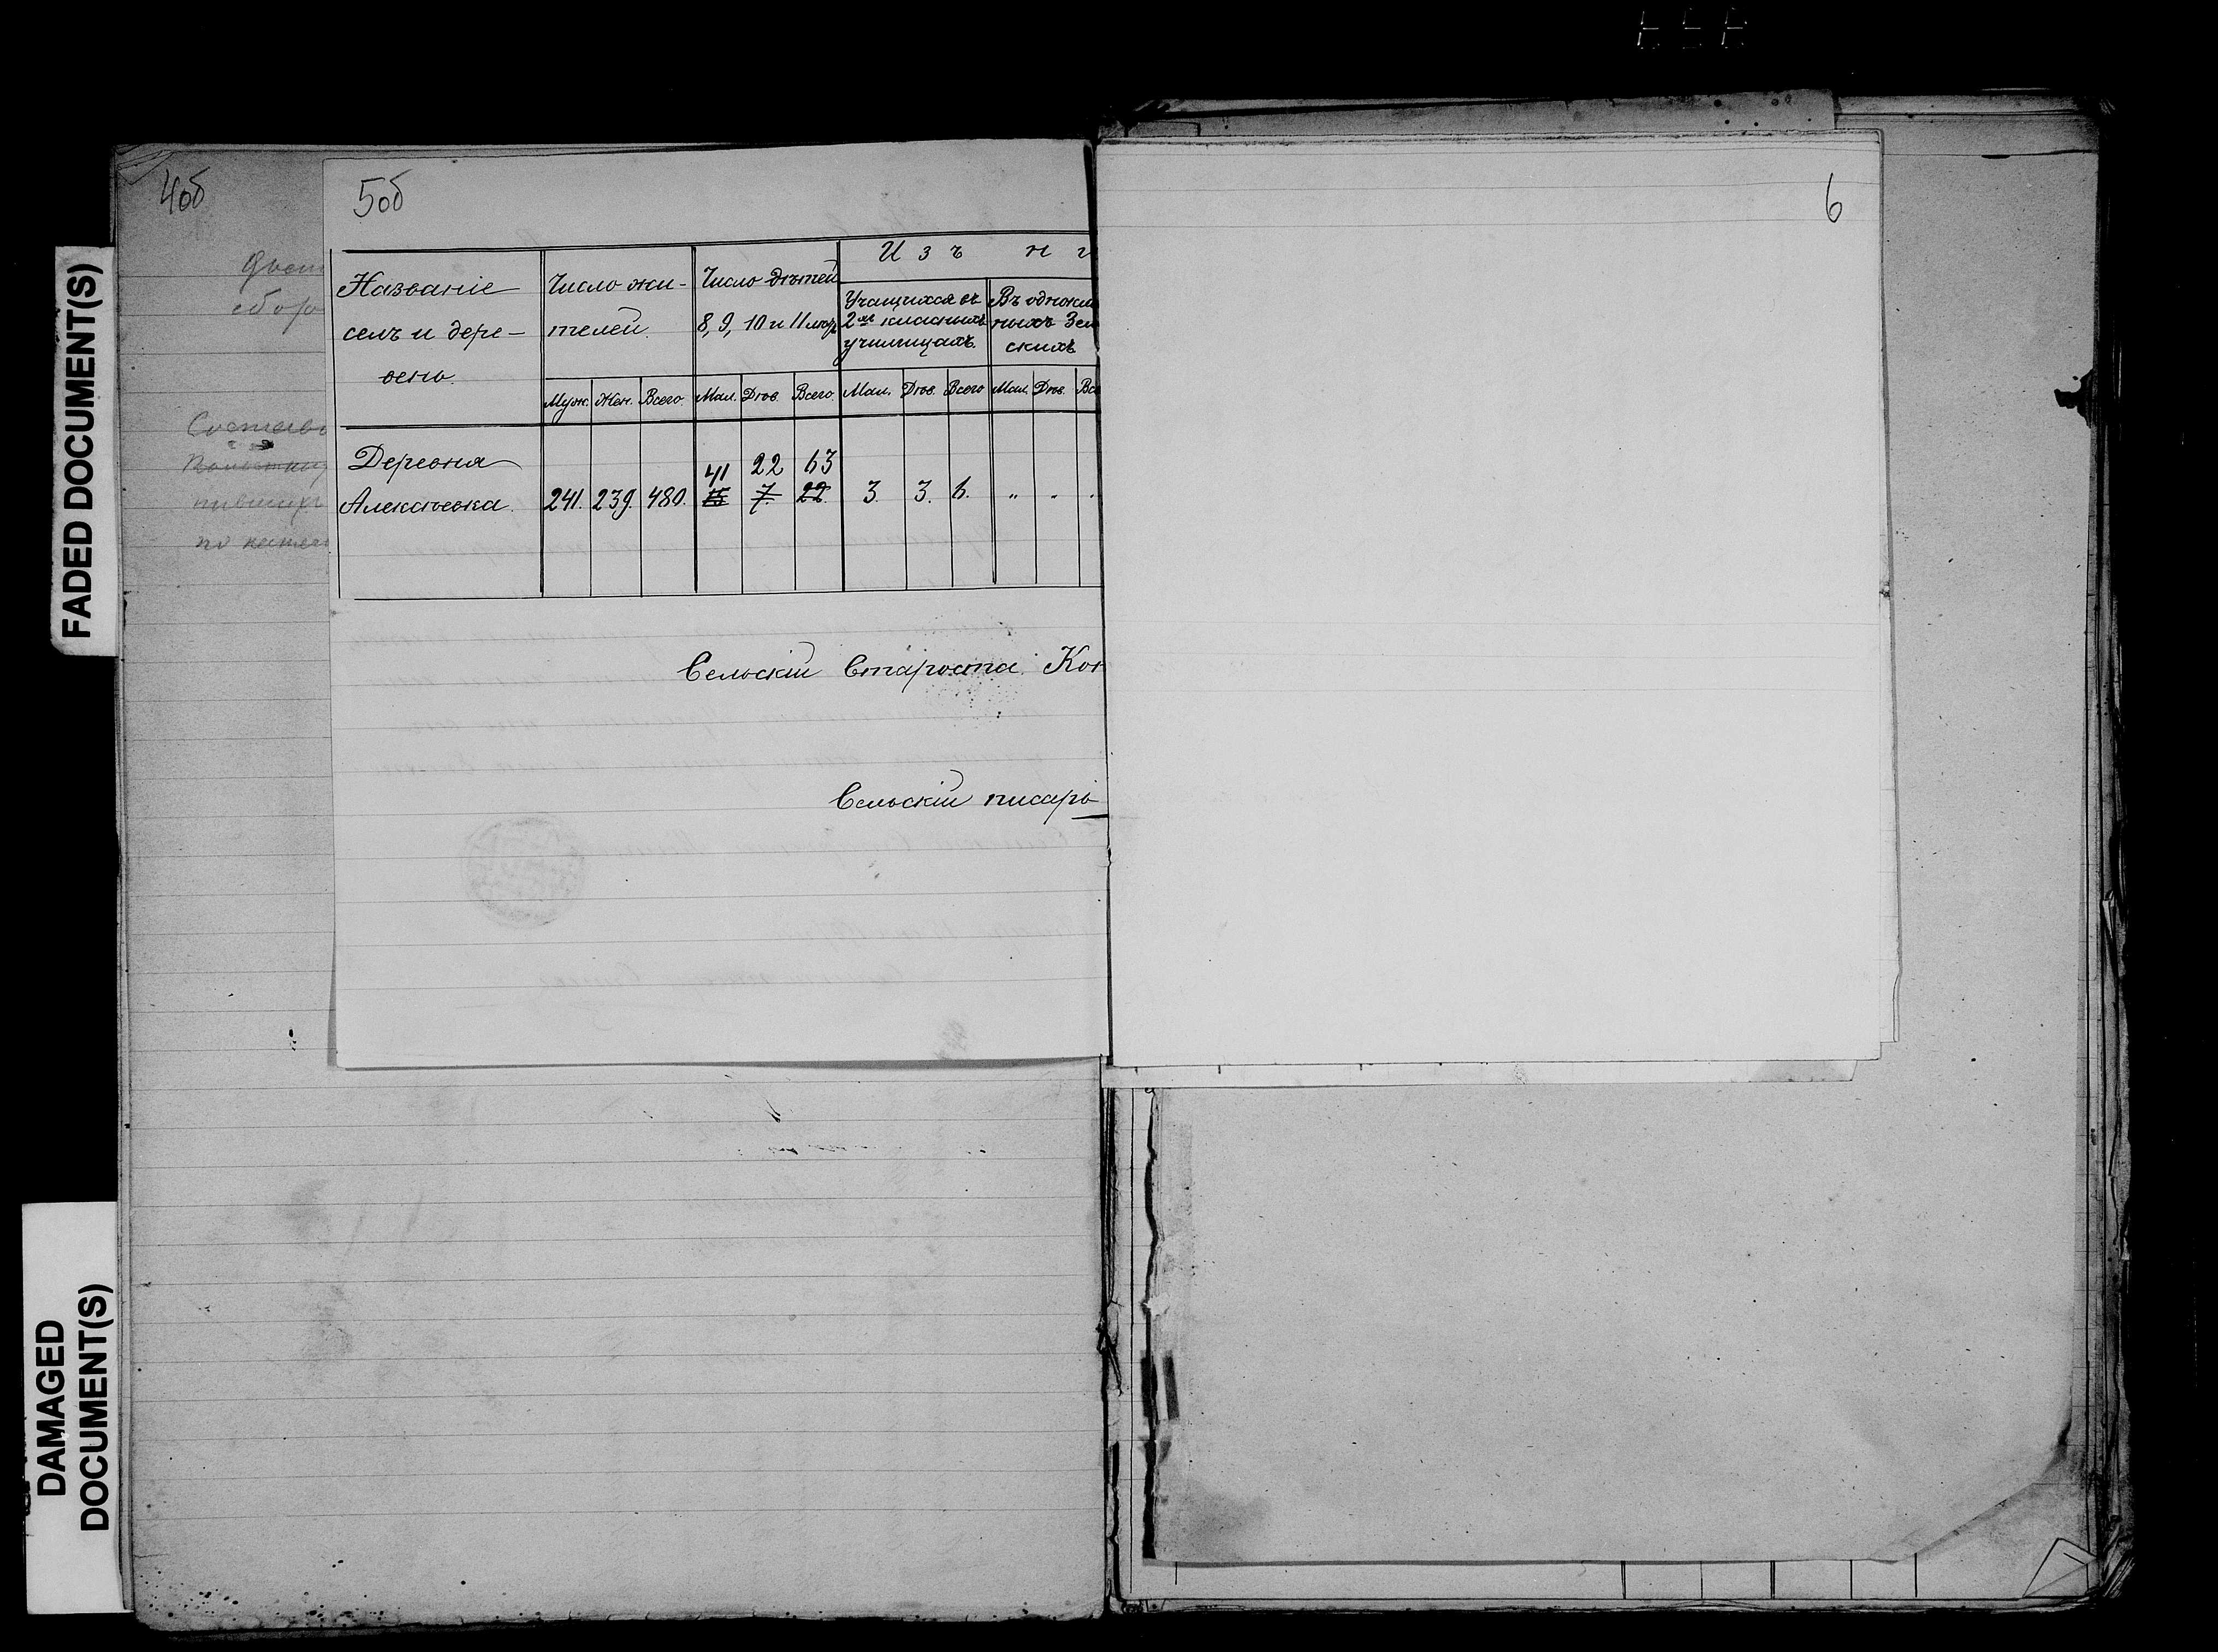 FADED DOCUMENT(S)
DAMAGED
DOCUMENT(S)
4об
5об
6
сбор
Названіе
селъ и дере-
вень.
Число жи-
телей.
Число дѣтей
8, 9, 10 и 11 лѣтъ
Изъ ни
Учащихся въ
2хъ класныхъ
училищахъ.
Въ однокла
ныхъ Зем
скихъ
Муж. Жен. Всего. Мал. Дѣв. Всего. Мал. Дѣв. Всего Мал. Дѣв. Все
Деревня
41 22 63
Алексѣевка. 241. 239. 480. 15 7. 22. 3. 3. 6. „ „
Сельскій Староста Кон
Сельскій писарь